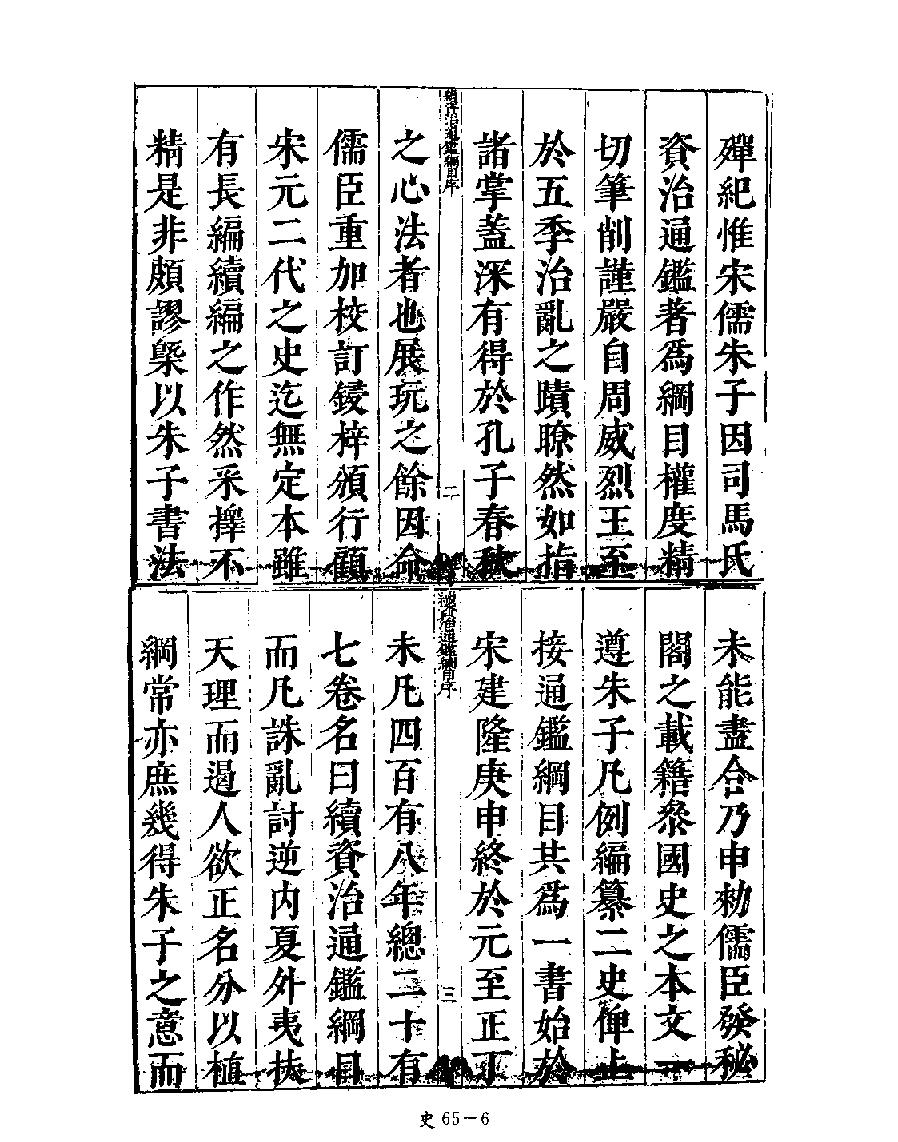 殫紀惟宋儒朱子因司馬氏
資治通鑑著爲綱目權度精
切筆削謹嚴自周威烈王至
於五季治亂之蹟瞭然如指
諸掌蓋深有得於孔子春秋
續資治通鑑綱目序
二
之心法者也展玩之餘因命
儒臣重加校訂鋟梓頒行顧
宋元二代之史迄無定本雖
有長編續編之作然采擇不
精是非頗謬槩以朱子書法
未能盡合乃申勑儒臣發秘
閣之載籍叅國史之本文一
遵朱子凡例編纂二史俾上
接通鑑綱目共爲一書始於
宋建隆庚申終於元至正丁
續資治通鑑綱目序
三
未凡四百有八年總二十有
七卷名曰續資治通鑑綱目
而凡誅亂討逆内夏外夷扶
天理而遏人欲正名分以植
綱常亦庶幾得朱子之意而
史 65－6